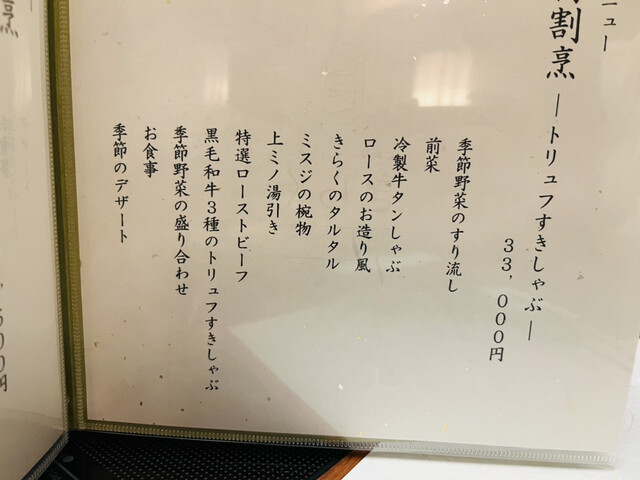 ニュー
割烹 ―トリュフすきしゃぶ―
33,000円
季節野菜のすり流し
前菜
冷製牛タンしゃぶ
ロースのお造り風
きらくのタルタル
ミスジの椀物
上ミノ湯引き
特選ローストビーフ
黒毛和牛3種のトリュフすきしゃぶ
季節野菜の盛り合わせ
お食事
季節のデザート
烹―
00円